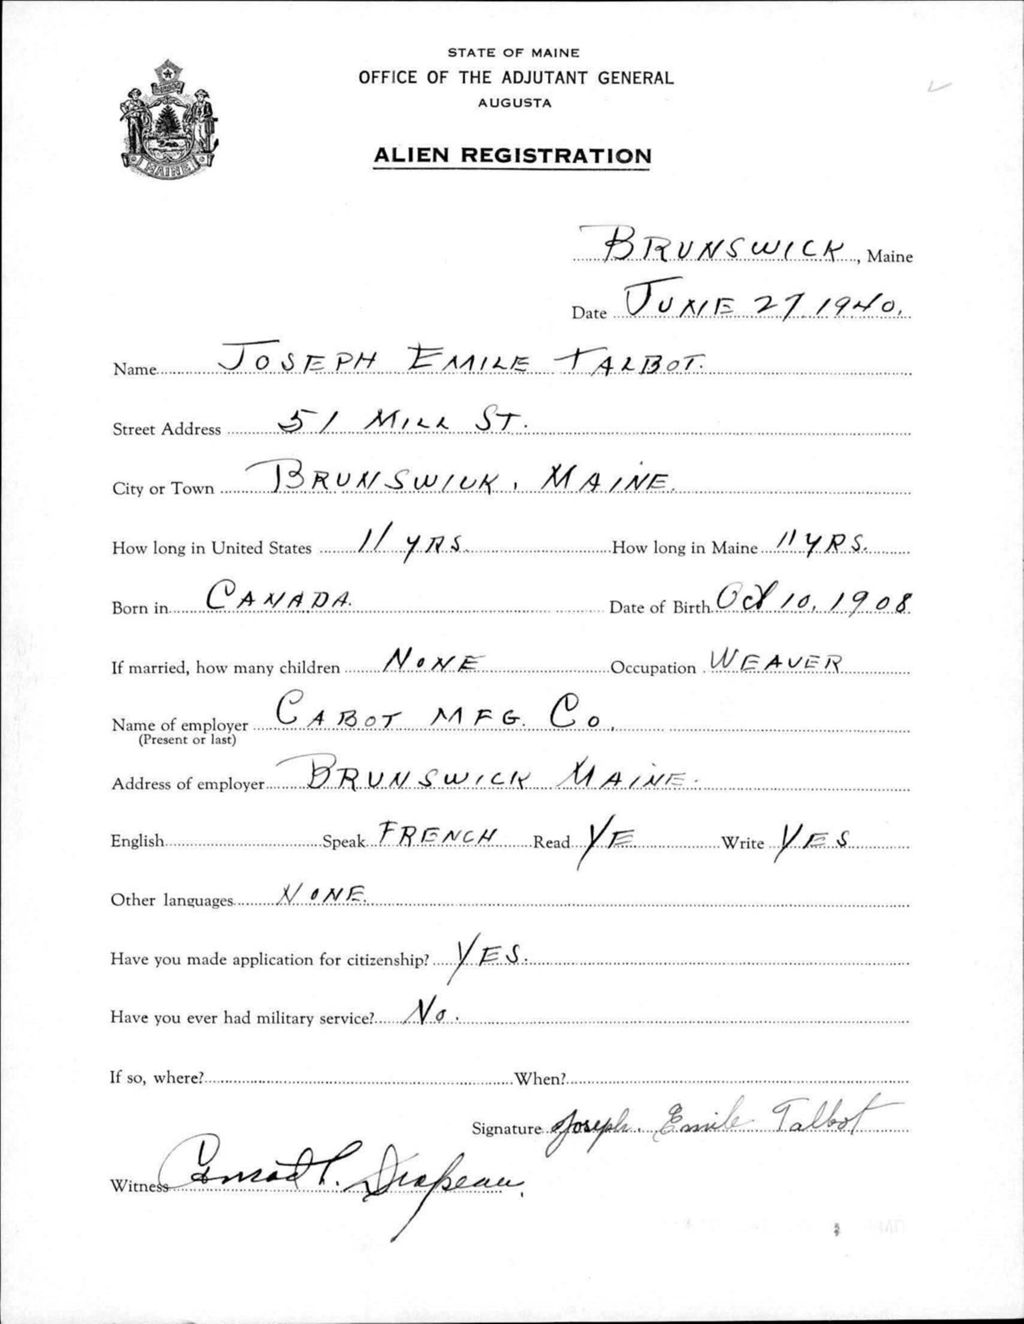 STATE OF MAINE
OFFICE OF THE ADJUTANT GENERAL
AUGUSTA
MAINE
ALIEN REGISTRATION
BRUNSWICK, Maine
Date JUNE 27, 1940.
Name JOSEPH EMILE TALBOT.
Street Address 51 MILL ST.
City or Town BRUNSWICK, MAINE.
How long in United States 11 YRS. How long in Maine 11 YRS.
Born in CANADA. Date of Birth Oct 10, 1908
If married, how many children NONE Occupation WEAVER
Name of employer CABOT MFG. Co.
(Present or last)
Address of employer BRUNSWICK MAINE.
English Speak FRENCH Read YE Write YES
Other languages NONE.
Have you made application for citizenship? YES.
Have you ever had military service? No.
If so, where? When?
Signature Joseph. Emile Talbot
Witness Conrad P. Drapeau.